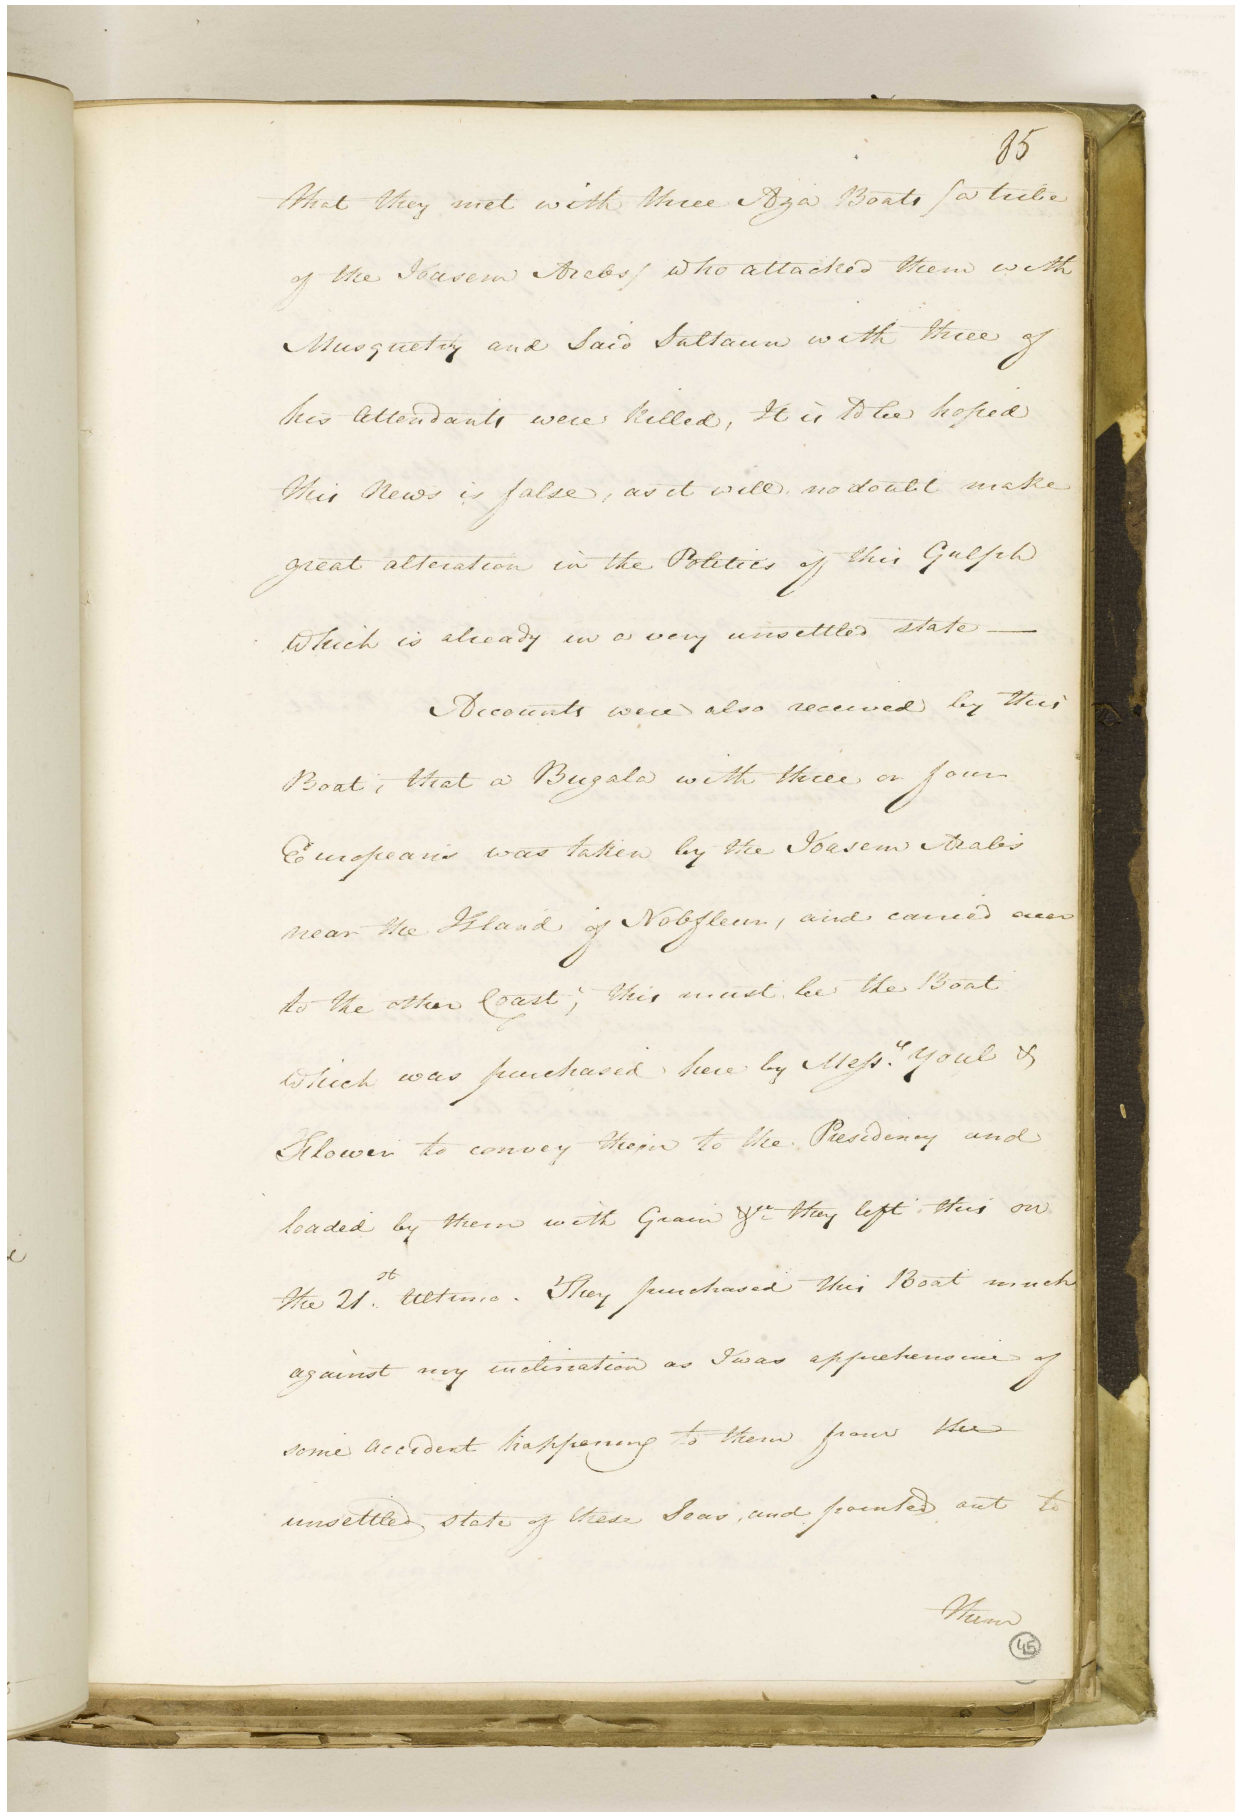 85
that they met with three Aza Boats /a tribe
of the Joasem Arabs/ who attacked them with
Musquetry and Said Sultaun with three of
his Attendants were killed, It is to be hoped
this News is false, as it will no doubt make
great alteration in the Politics of this Gulph
which is already in a very unsettled state —
Accounts were also received by this
Boat, that a Bugala with three or four
Europeans was taken by the Joasem Arabs
near the Island of Nobfleur, and carried over
to the other Coast; this must be the Boat
which was purchased here by Messrs. Youl &
Flower to convey them to the Presidency and
loaded by them with Grain &ca they left this on
the 21.st Ultimo. They purchased this Boat much
against my inclination as I was apprehensive of
some accident happening to them from the
unsettled state of these Seas, and pointed out to
them
45